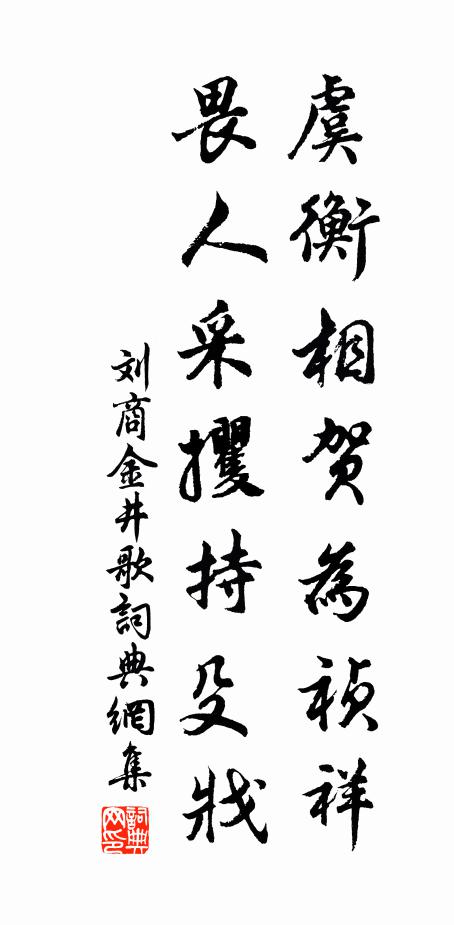 虞衡相贺為祯祥
畏人采攫持殳戕
刘商金井歌詞典網集
詞典网印